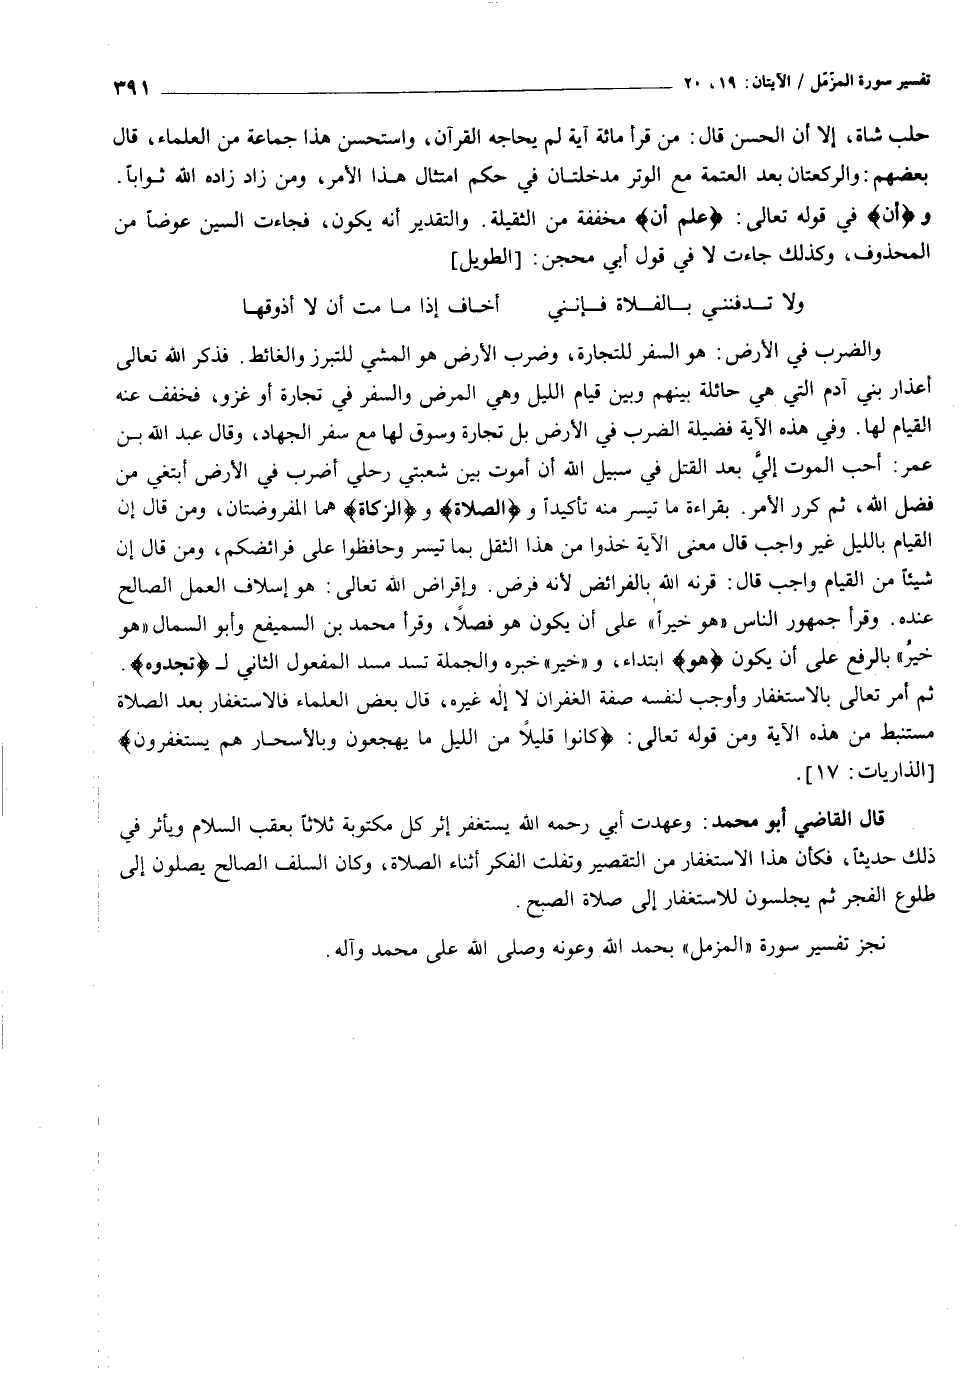 تفسير سورة المزّمّل / الآيتان: ١٩، ٢٠ ٣٩١
حلب شاة، إلا أن الحسن قال: من قرأ مائة آية لم يحاجه القرآن، واستحسن هذا جماعة من العلماء، قال
بعضهم: والركعتان بعد العتمة مع الوتر مدخلتان في حكم امتثال هذا الأمر، ومن زاد زاده الله ثواباً.
و ﴿أن﴾ في قوله تعالى: ﴿علم أن﴾ مخففة من الثقيلة. والتقدير أنه يكون، فجاءت السين عوضاً من
المحذوف، وكذلك جاءت لا في قول أبي محجن: [الطويل]
ولا تدفنني بالفلاة فإنني أخاف إذا ما مت أن لا أذوقها
والضرب في الأرض: هو السفر للتجارة، وضرب الأرض هو المشي للتبرز والغائط. فذكر الله تعالى
أعذار بني آدم التي هي حائلة بينهم وبين قيام الليل وهي المرض والسفر في تجارة أو غزو، فخفف عنه
القيام لها. وفي هذه الآية فضيلة الضرب في الأرض بل تجارة وسوق لها مع سفر الجهاد، وقال عبد الله بن
عمر: أحب الموت إليَّ بعد القتل في سبيل الله أن أموت بين شعبتي رحلي أضرب في الأرض أبتغي من
فضل الله، ثم كرر الأمر. بقراءة ما تيسر منه تأكيداً و ﴿الصلاة﴾ و ﴿الزكاة﴾ هما المفروضتان، ومن قال إن
القيام بالليل غير واجب قال معنى الآية خذوا من هذا الثقل بما تيسر وحافظوا على فرائضكم، ومن قال إن
شيئاً من القيام واجب قال: قرنه الله بالفرائض لأنه فرض. وإقراض الله تعالى: هو إسلاف العمل الصالح
عنده. وقرأ جمهور الناس «هو خيراً» على أن يكون هو فصلًا، وقرأ محمد بن السميفع وأبو السمال «هو
خيرُ» بالرفع على أن يكون ﴿هو﴾ ابتداء، و «خير» خبره والجملة تسد مسد المفعول الثاني لـ ﴿تجدوه﴾.
ثم أمر تعالى بالاستغفار وأوجب لنفسه صفة الغفران لا إلٰه غيره، قال بعض العلماء فالاستغفار بعد الصلاة
مستنبط من هذه الآية ومن قوله تعالى: ﴿كانوا قليلًا من الليل ما يهجعون وبالأسحار هم يستغفرون﴾
[الذاريات: ١٧].
قال القاضي أبو محمد: وعهدت أبي رحمه الله يستغفر إثر كل مكتوبة ثلاثاً بعقب السلام ويأثر في
ذلك حديثاً، فكأن هذا الاستغفار من التقصير وتفلت الفكر أثناء الصلاة، وكان السلف الصالح يصلون إلى
طلوع الفجر ثم يجلسون للاستغفار إلى صلاة الصبح.
نجز تفسير سورة «المزمل» بحمد الله وعونه وصلى الله على محمد وآله.